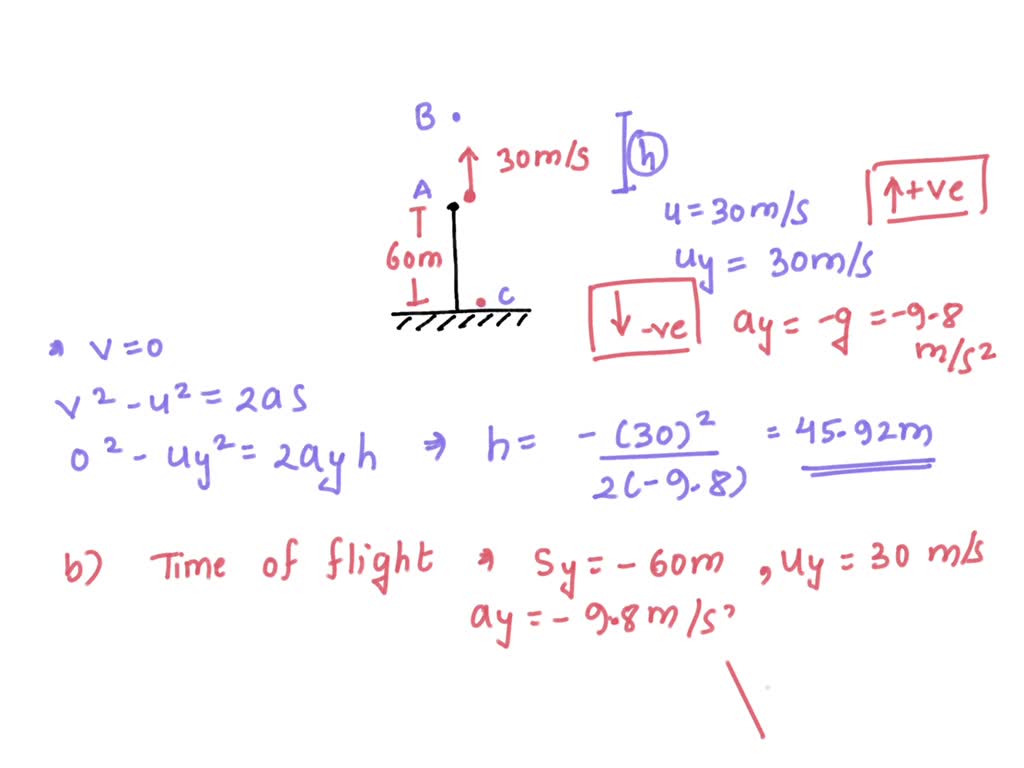 B
30m/s
h
A
u = 30m/s
↑+ve
60m
uy = 30m/s
C
↓ -ve
ay = -g = -9.8
m/s²
v = 0
v² - u² = 2as
0² - uy² = 2ayh ⇒ h = -(30)² / 2(-9.8) = 45.92m
b) Time of flight → Sy = -60m , uy = 30 m/s
ay = -9.8m/s²